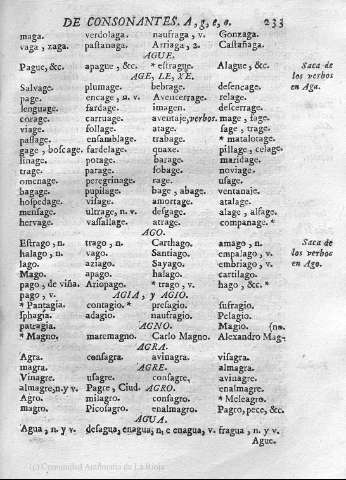 DE CONSONANTES. A, g, e, o. 233
maga. verdolaga. naufraga, v. Gonzaga.
vaga, zaga. pastanaga. Arriaga, 2. Castañaga.
AGUE.
Pague, &c. apague, &c. * estrague. Alague, &c. Saca de
AGE, LE, XE. los verbos
Salvage. plumage. bebrage. desencage. en Aga.
page. encage, n. v. Avencerrage. relage.
lenguage. fardage. imagen. descerrage.
corage. carruage. aventaje, verbos. mage, faje.
viage. follage. atage. sage, trage.
passage. ensamblage. trabage. * matalotage.
gage, boscage. fardelage. quaxe. pillage, celage.
linage. potage. barage. maridage.
trage. parage. fobage. noviage.
omenage. peregrinage. rage. usage.
bagage. pupilage. bage, abage. ventanaje.
hospedage. visage. amortage. atalage.
mensage. ultrage, n. v. desgage. alage, alfage.
hervage. vassallage. atrage. companage. *
AGO.
Estrago, n. trago, n. Carthago. amago, n. Saca de
halago, n. vago. Santiago. empalago, v. los verbos
lago. aziago. Sayago. embriago, v. en Ago.
Mago. apago. halago. cartilago.
pago, de viña. Ariopago. * trago, v. hago, &c. *
pago, v. AGIA, y AGIO.
* Pantagia. contagio. * presagio. sufragio.
sphagia. adagio. naufragio. Pelagio.
patragia. AGNO. Magio. (no.
* Magno. maremagno. Carlo Magno. Alexandro Mag-
AGRA.
Agra. consagra. avinagra. visagra.
magra. AGRE. almagra.
Vinagre. usagre. consagre. avinagre.
almagre, n. y v. Pagre, Ciud. AGRO. enalmagre.
Agro. milagro. consagro. * Meleagro.
magro. Picosagro. enalmagro. Pagro, pece, &c.
AGUA.
Agua, n. y v. desagua, enagua, n. e enagua, v. fragua, n. y v.
Ague.
(c) Comunidad Autónoma de La Rioja